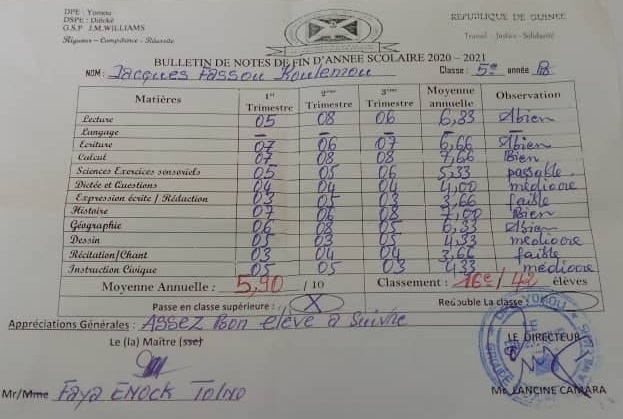 DPE : Yomou
DSPE : Diécké
G.S.P J.M.WILLIAMS
Rigueur – Compétence - Réussite
REPUBLIQUE DE GUINEE
Travail - Justice - Solidarité
BULLETIN DE NOTES DE FIN D'ANNEE SCOLAIRE 2020 – 2021
NOM : Jacques Fassou Koulemou Classe : 5e année B
Matières 1er Trimestre 2ème Trimestre 3ème Trimestre Moyenne annuelle Observation
Lecture 05 08 06 6,33 Abien
Langage – – – – –
Ecriture 07 06 07 6,66 Abien
Calcul 07 08 08 7,66 Bien
Sciences Exercices sensoriels 05 05 06 5,33 passable
Dictée et Questions 04 04 04 4,00 médiocre
Expression écrite / Rédaction 03 05 03 3,66 faible
Histoire 07 06 08 7,00 Bien
Géographie 06 08 05 6,33 Abien
Dessin 05 03 05 4,33 médiocre
Récitation/Chant 03 04 04 3,66 faible
Instruction Civique 05 05 03 4,33 médiocre
Moyenne Annuelle : 5,90 / 10 Classement : 16e / 42 élèves
Passe en classe supérieure : X Redouble La classe :
Appréciations Générales : Assez Bon elève à Suivre
Le (la) Maître (sse) LE DIRECTEUR
Mr/Mme Faya ENOCK TOLNO Mc LANCINE CAMARA